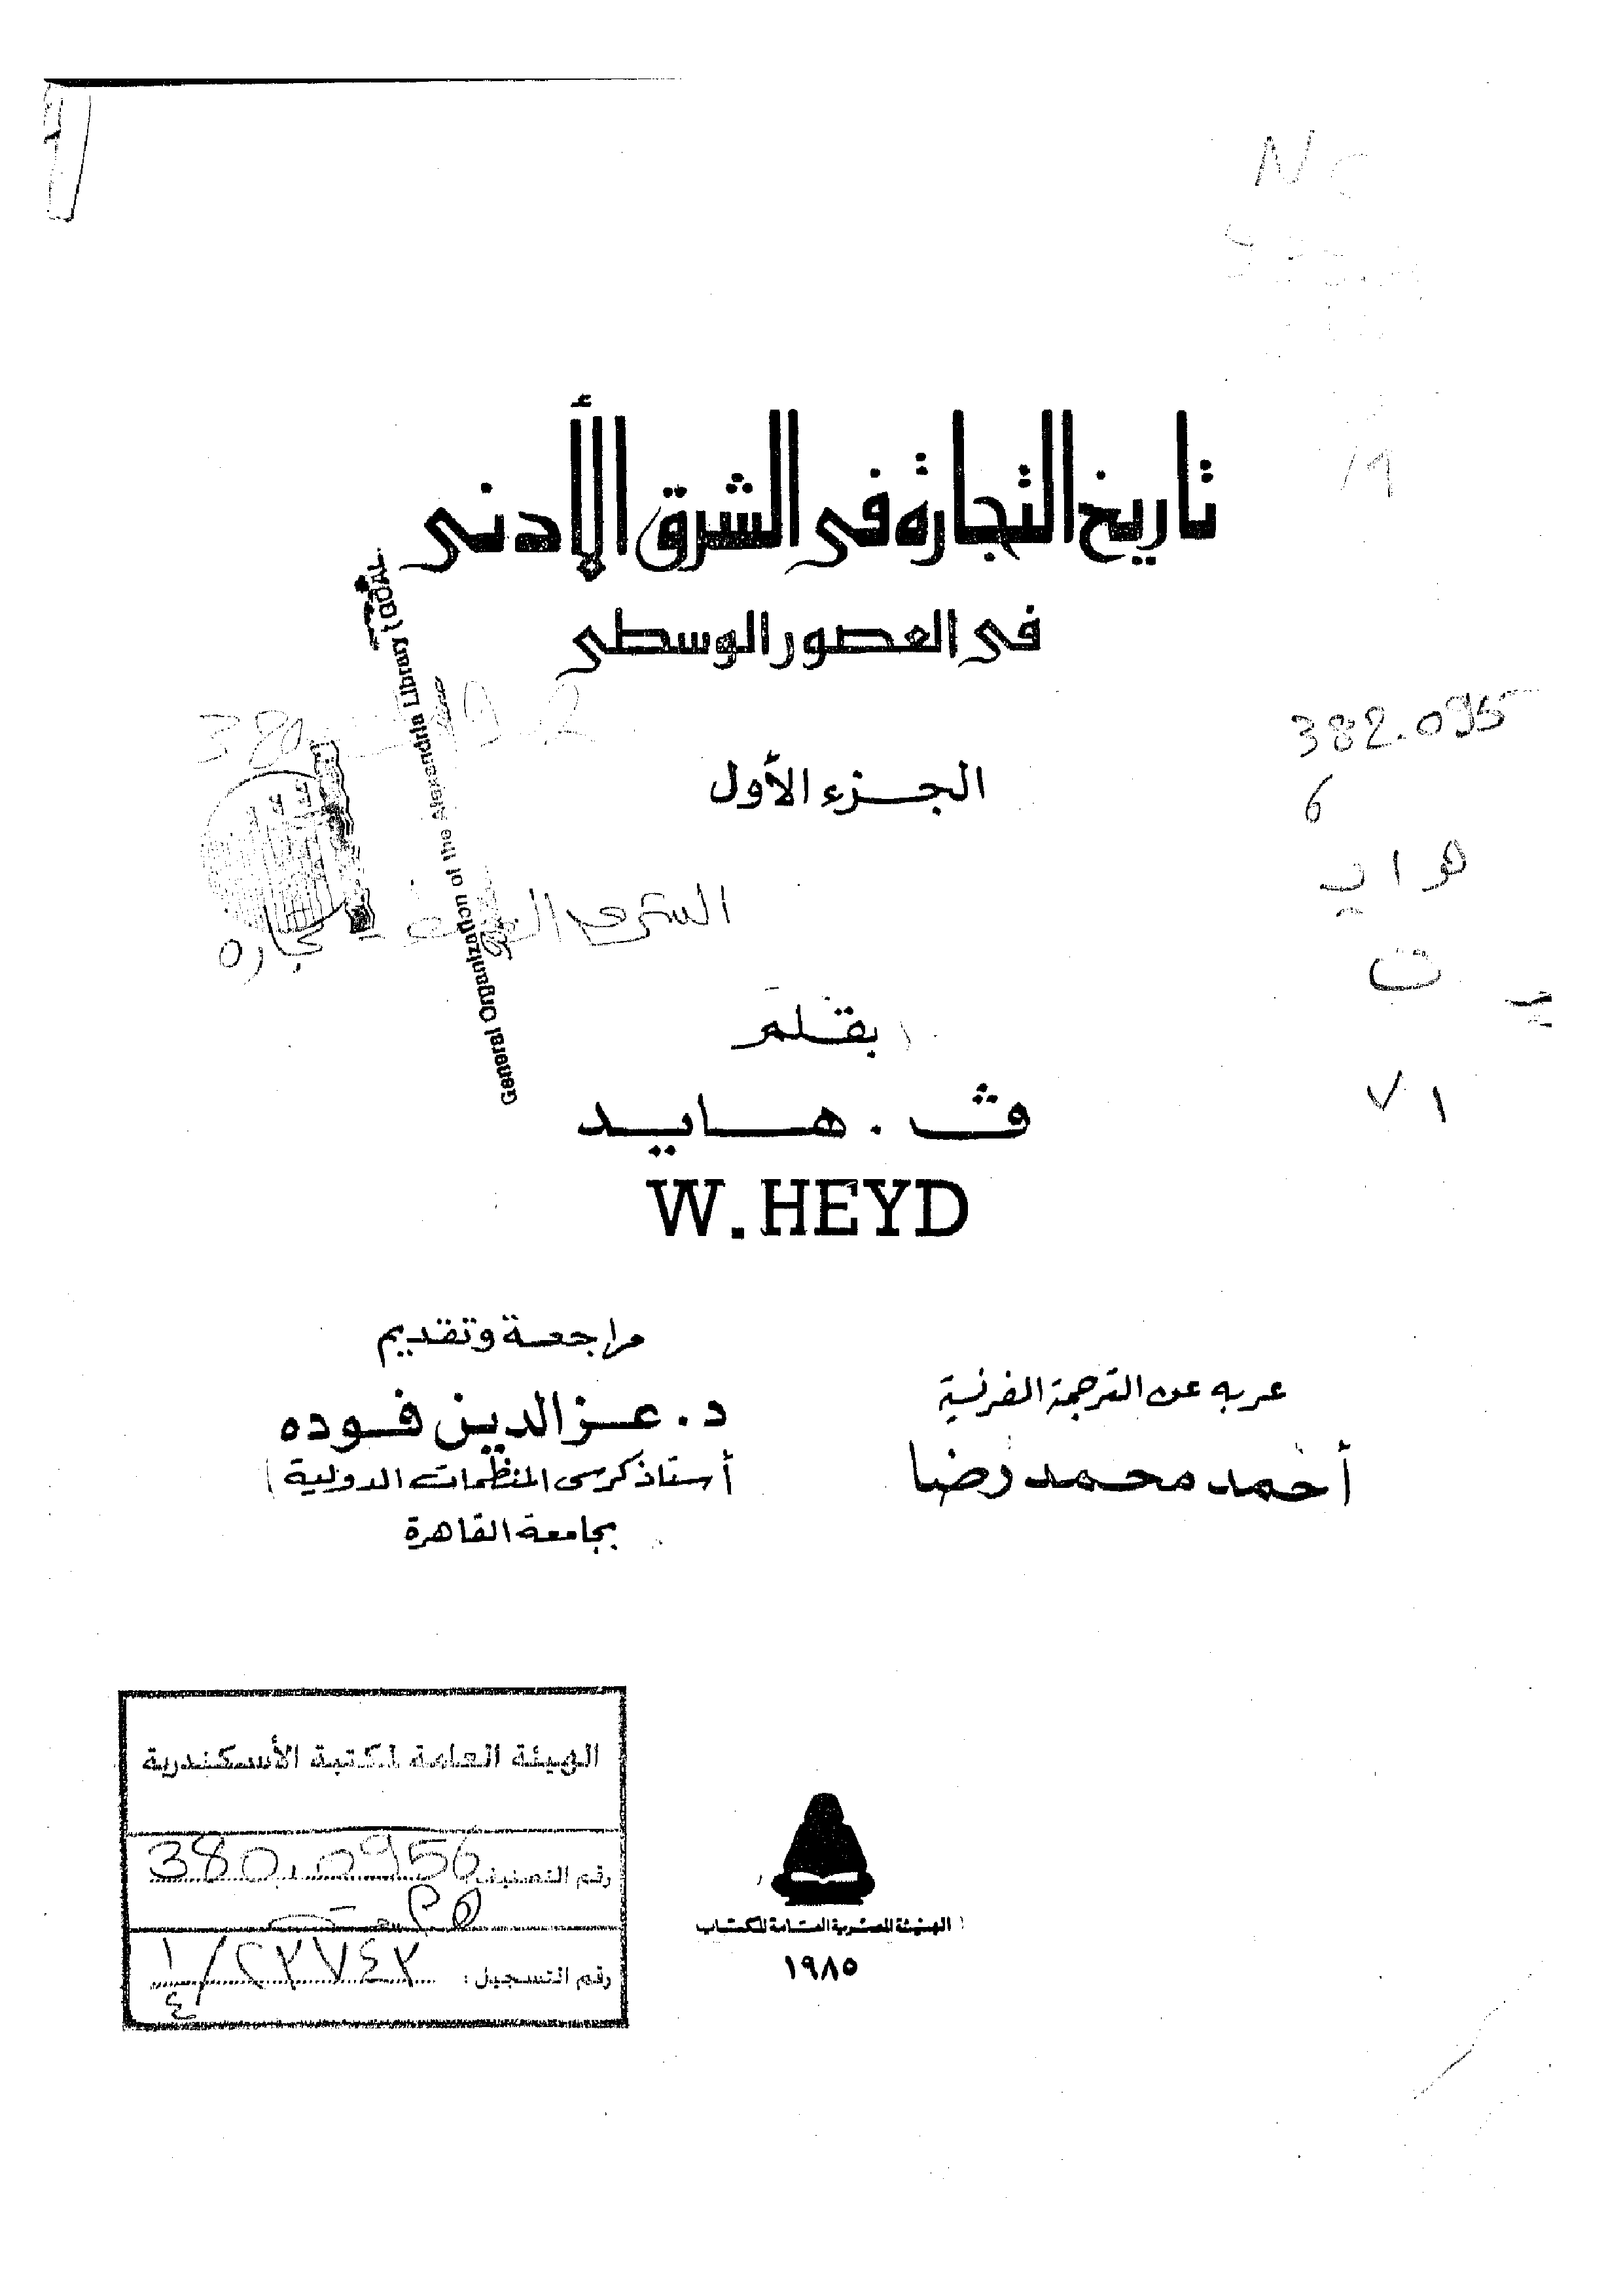 تاريخ التجارة فى الشرق الأدنى
فى العصور الوسطى
General Organization of the Alexandria Library (GOAL
382.095
الجزء الأول
6
هايد
ت
بقلم
ڤ . هايد
W.HEYD
مراجعة وتقديم
د. عز الدين فوده
أستاذ كرسى المنظمات الدولية
بجامعة القاهرة
عربه عن الترجمة الفرنسية
أحمد محمد رضا
الهيئة العامة لمكتبة الأسكندرية
رقم التصنيف 380.0956
رقم التسجيل :
الهيئة المصرية العامة للكتاب
١٩٨٥